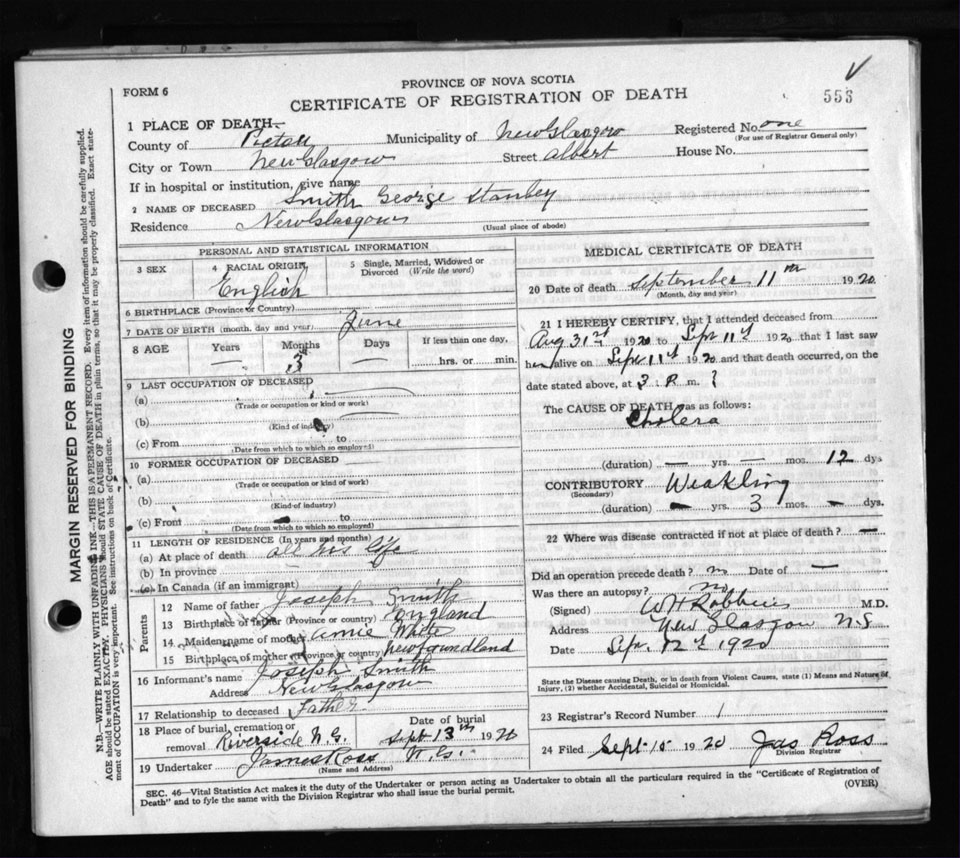 FORM 6
PROVINCE OF NOVA SCOTIA
CERTIFICATE OF REGISTRATION OF DEATH
553
1 PLACE OF DEATH
County of Pictou Municipality of New Glasgow Registered No. one
(For use of Registrar General only)
City or Town New Glasgow Street Albert House No.
If in hospital or institution, give name
2 NAME OF DECEASED Smith George Stanley
Residence New Glasgow
(Usual place of abode)
PERSONAL AND STATISTICAL INFORMATION
3 SEX 4 RACIAL ORIGIN 5 Single, Married, Widowed or Divorced (Write the word)
English
6 BIRTHPLACE (Province or Country)
7 DATE OF BIRTH (month, day and year) June
8 AGE Years Months Days If less than one day,
— 3 — hrs. or min.
9 LAST OCCUPATION OF DECEASED
(a)
(Trade or occupation or kind of work)
(b)
(Kind of industry)
(c) From to
(Date from which to which so employed)
10 FORMER OCCUPATION OF DECEASED
(a)
(Trade or occupation or kind of work)
(b)
(Kind of industry)
(c) From to
(Date from which to which so employed)
11 LENGTH OF RESIDENCE (In years and months)
(a) At place of death all his life
(b) In province
(c) In Canada (if an immigrant)
Parents
12 Name of father Joseph Smith
13 Birthplace of father (Province or country) England
14 Maiden name of mother Annie White
15 Birthplace of mother (Province or country) Newfoundland
16 Informant's name Joseph Smith
Address New Glasgow
17 Relationship to deceased Father
18 Place of burial, cremation or removal Riverside N.G. Date of burial Sept 13th 1920
19 Undertaker James Ross N.G.
(Name and Address)
MEDICAL CERTIFICATE OF DEATH
20 Date of death September 11th 1920
(Month, day and year)
21 I HEREBY CERTIFY, that I attended deceased from
Aug 31st 1920 to Sept 11th 1920 that I last saw
him alive on Sept 11th 1920 and that death occurred, on the
date stated above, at 3 P. m.
The CAUSE OF DEATH was as follows:
Cholera
(duration) — yrs. — mos. 12 dys
CONTRIBUTORY Weakling
(Secondary)
(duration) — yrs. 3 mos. — dys.
22 Where was disease contracted if not at place of death? —
Did an operation precede death? no Date of —
Was there an autopsy? no
(Signed) M.D.
Address New Glasgow N.S
Date Sep. 12th 1920
State the Disease causing Death, or in death from Violent Causes, state (1) Means and Nature of
Injury, (2) whether Accidental, Suicidal or Homicidal.
23 Registrar's Record Number 1
24 Filed Sept 15 1920 Jas Ross
Division Registrar
SEC. 46—Vital Statistics Act makes it the duty of the Undertaker or person acting as Undertaker to obtain all the particulars required in the "Certificate of Registration of
Death" and to fyle the same with the Division Registrar who shall issue the burial permit. (OVER)
MARGIN RESERVED FOR BINDING
N.B.—WRITE PLAINLY WITH UNFADING INK—THIS IS A PERMANENT RECORD. Every item of information should be carefully supplied.
AGE should be stated EXACTLY. PHYSICIANS should STATE CAUSE OF DEATH in plain terms, so that it may be properly classified. Exact state-
ment of OCCUPATION is very important. See instructions on back of Certificate.